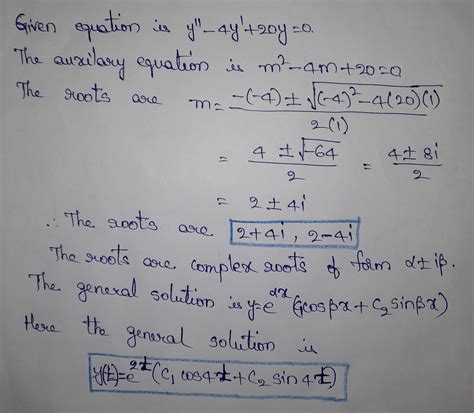 Given equation is y"-4y'+20y=0.
The auxilary equation is m²-4m+20=0
The roots are m= -(-4)±√(-4)²-4(20)(1) / 2(1)
= 4 ±√-64 / 2 = 4± 8i / 2
= 2 ± 4i
∴ The roots are 2+4i, 2-4i
The roots are complex roots of form α±iβ.
The general solution is y=e^αx(c₁cosβx+C₂sinβx)
Here the general solution is
y(t)=e^2t(C₁ cos4t+C₂ sin 4t)